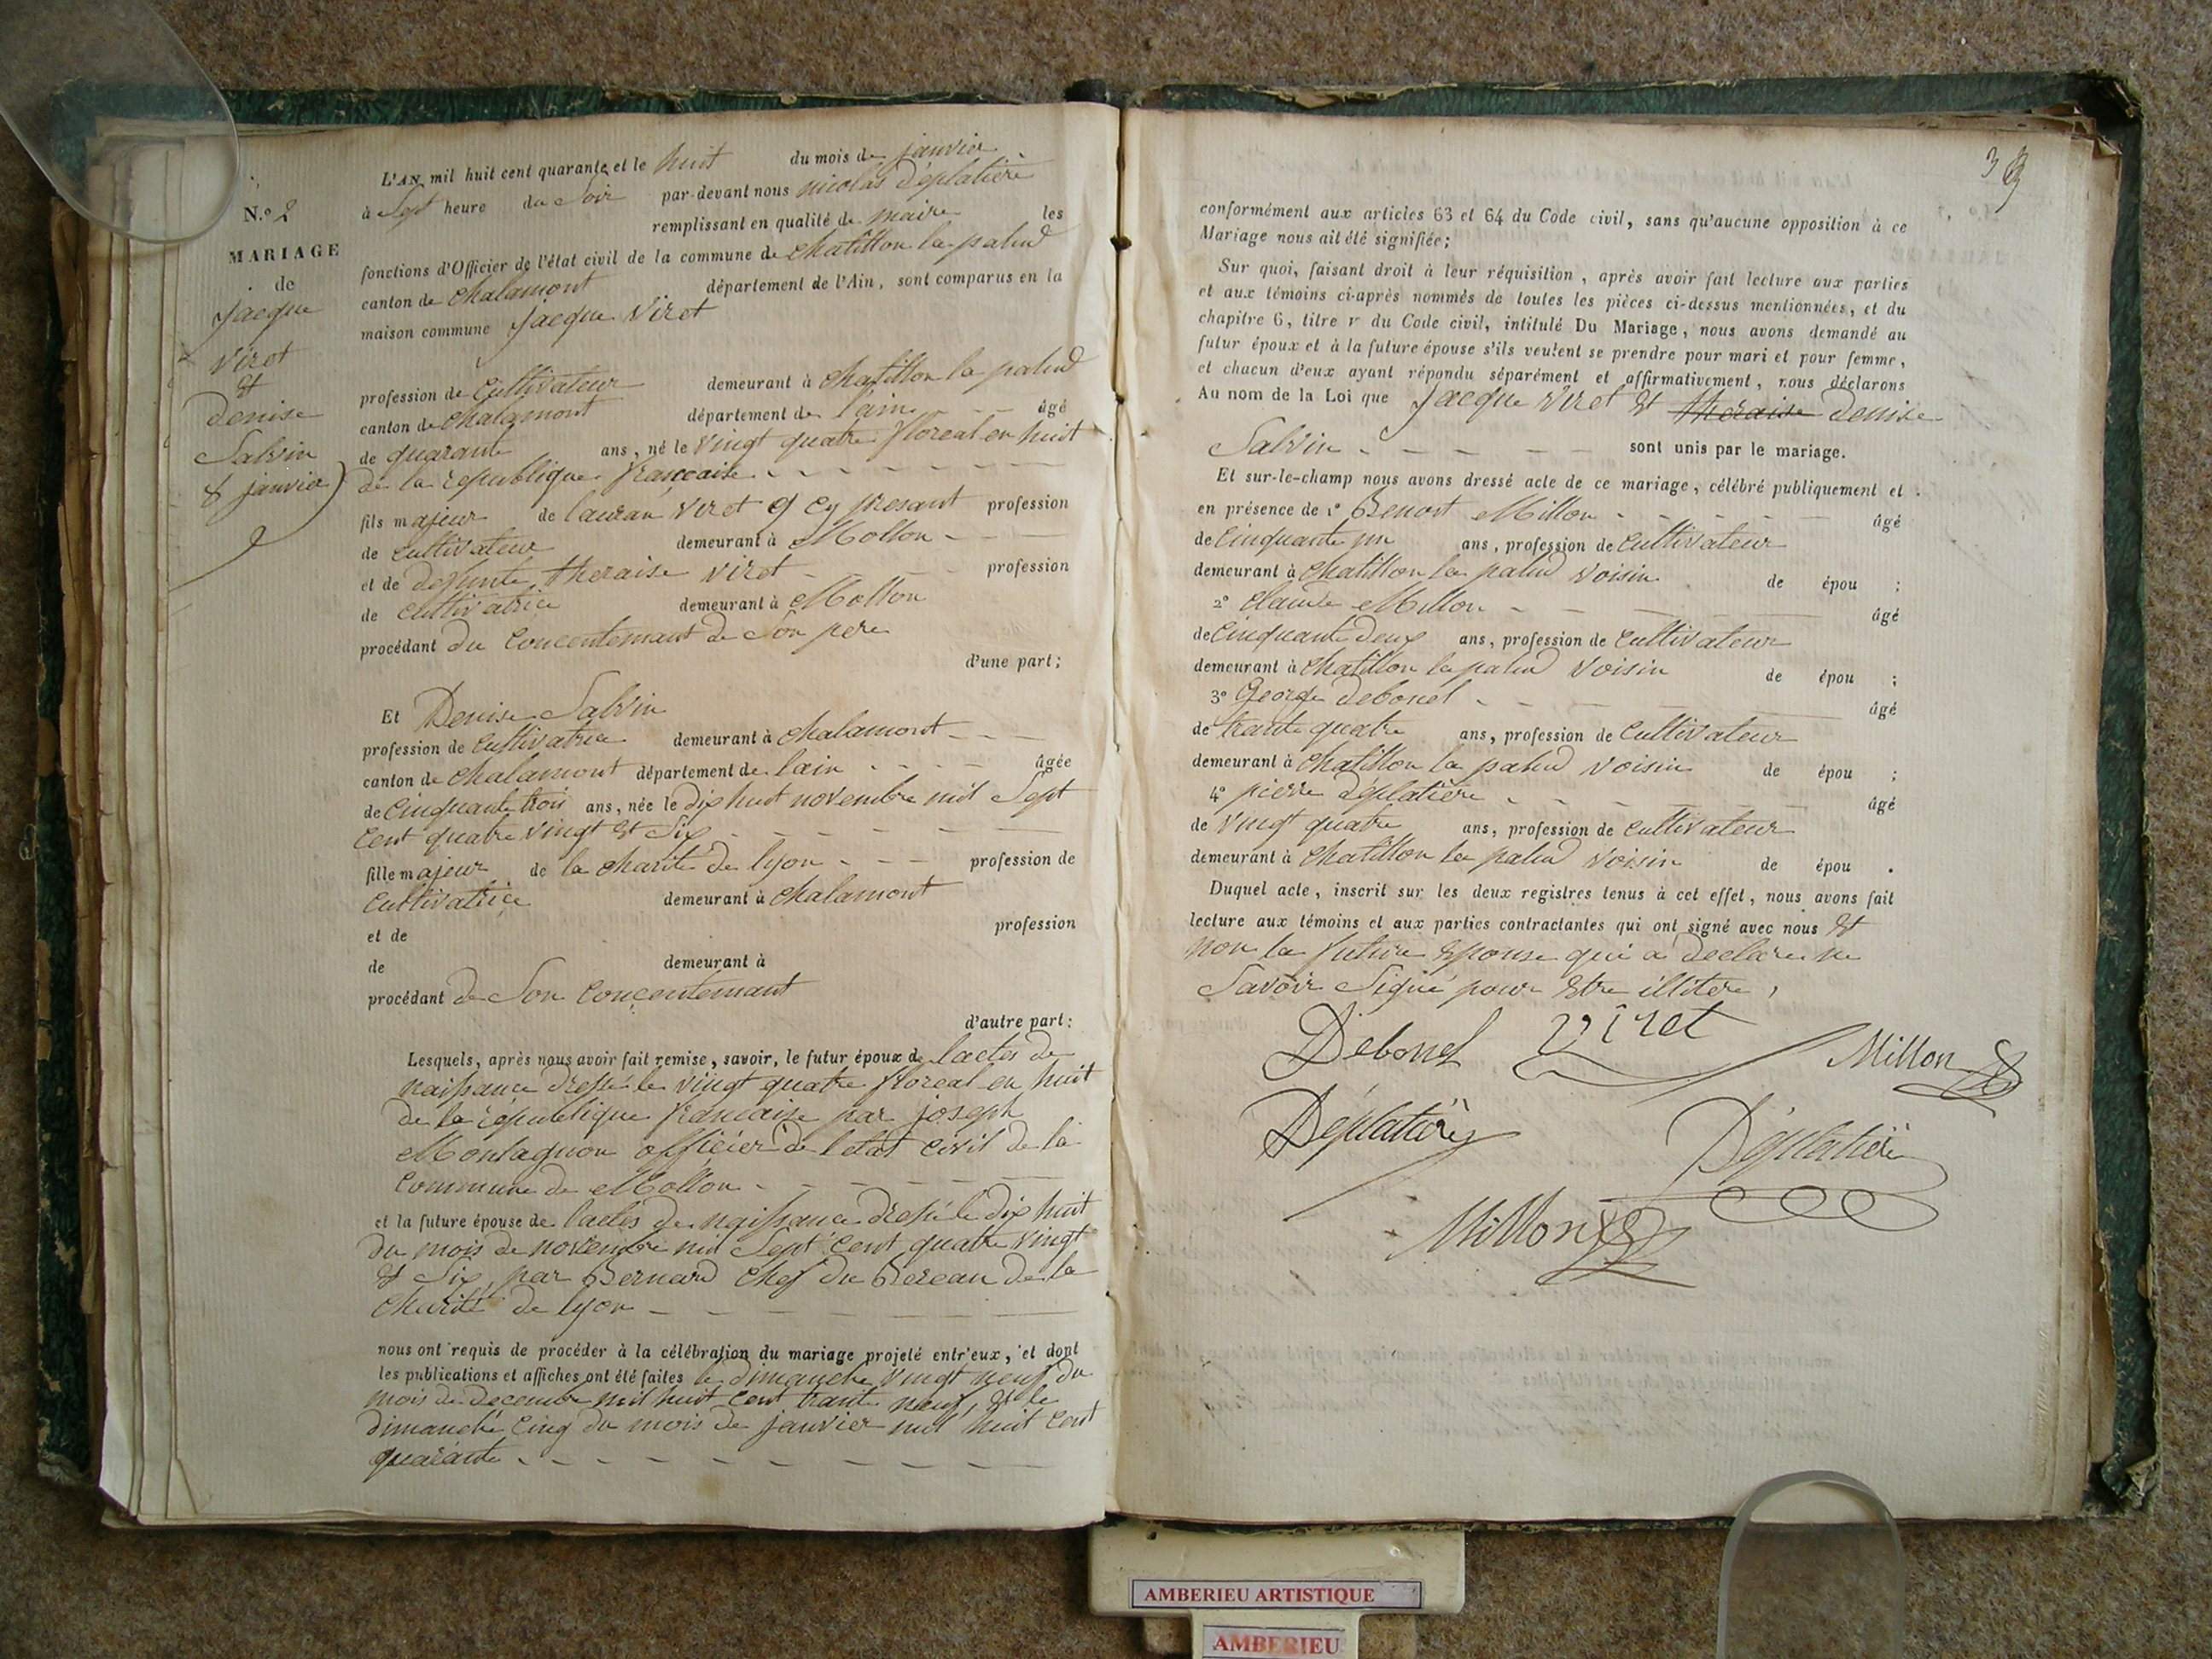 N.º 2
MARIAGE
de
Jacque
Viret
et
Denise
Salvin
8 janvier
L'AN mil huit cent quarante et le huit du mois de janvier
à Sept heure du Soir par-devant nous nicolas Déplatière
remplissant en qualité de maire les
fonctions d'Officier de l'état civil de la commune de chatillon la palud
canton de chalamont département de l'Ain, sont comparus en la
maison commune Jacque Viret
profession de Cultivateur demeurant à chatillon la palud
canton de chalamont département de lain âgé
de quarante ans, né le vingt quatre floreal en huit
de la republique francaise
fils majeur de lauran Viret cy presant profession
de cultivateur demeurant à Mollon
et de defunte theraise Viret profession
de cultivatrice demeurant à Mollon
procédant du Concentemant de Son pere
d'une part;
Et Denise Salvin
profession de Cultivatrice demeurant à chalamont
canton de chalamont département de lain âgée
de Cinquante trois ans, née le dix huit novembre mil Sept
Cent quatre vingt et Six
fille majeur de la charité de lyon profession de
Cultivatrice demeurant à chalamont
et de profession
de demeurant à
procédant de Son Concentemant
d'autre part:
Lesquels, après nous avoir fait remise, savoir, le futur époux de lactes de
naissance dressé le vingt quatre floreal en huit
de la republique francaise par joseph
Montagnon officier de l'etat civil de la
Commune de Mollon
et la future épouse de lactes de naissance dressé le dix huit
du mois de novembre mil Sept Cent quatre vingt
et Six, par Bernard chef du Bereau de la
charité de lyon
nous ont requis de procéder à la célébration du mariage projeté entr'eux, et dont
les publications et affiches ont été faites le dimanche vingt neuf du
mois de decembre mil huit cent trante neuf, et le
dimanche Cinq du mois de janvier mil huit Cent
quarante
3
conformément aux articles 63 et 64 du Code civil, sans qu'aucune opposition à ce
Mariage nous ait été signifiée;
Sur quoi, faisant droit à leur réquisition, après avoir fait lecture aux parties
et aux témoins ci-après nommés de toutes les pièces ci-dessus mentionnées, et du
chapitre 6, titre v du Code civil, intitulé Du Mariage, nous avons demandé au
futur époux et à la future épouse s'ils veulent se prendre pour mari et pour femme,
et chacun d'eux ayant répondu séparément et affirmativement, nous déclarons
Au nom de la Loi que Jacque Viret et theraise Denise
Salvin sont unis par le mariage.
Et sur-le-champ nous avons dressé acte de ce mariage, célébré publiquement et
en présence de 1º Benoit Millon âgé
de Cinquante un ans, profession de Cultivateur
demeurant à chatillon la palud voisin de épou ;
2º Claude Millon âgé
de Cinquante deux ans, profession de Cultivateur
demeurant à chatillon la palud voisin de épou ;
3º George Debonel âgé
de trante quatre ans, profession de Cultivateur
demeurant à chatillon la palud voisin de épou ;
4º pierre déplatière âgé
de vingt quatre ans, profession de Cultivateur
demeurant à chatillon la palud voisin de épou .
Duquel acte, inscrit sur les deux registres tenus à cet effet, nous avons fait
lecture aux témoins et aux parties contractantes qui ont signé avec nous et
non la future Epouse qui a declaré ne
Savoir Signé pour Etre illitere,
Debonel Viret Millon
Déplatière Déplatière
Millon
AMBERIEU ARTISTIQUE
AMBERIEU